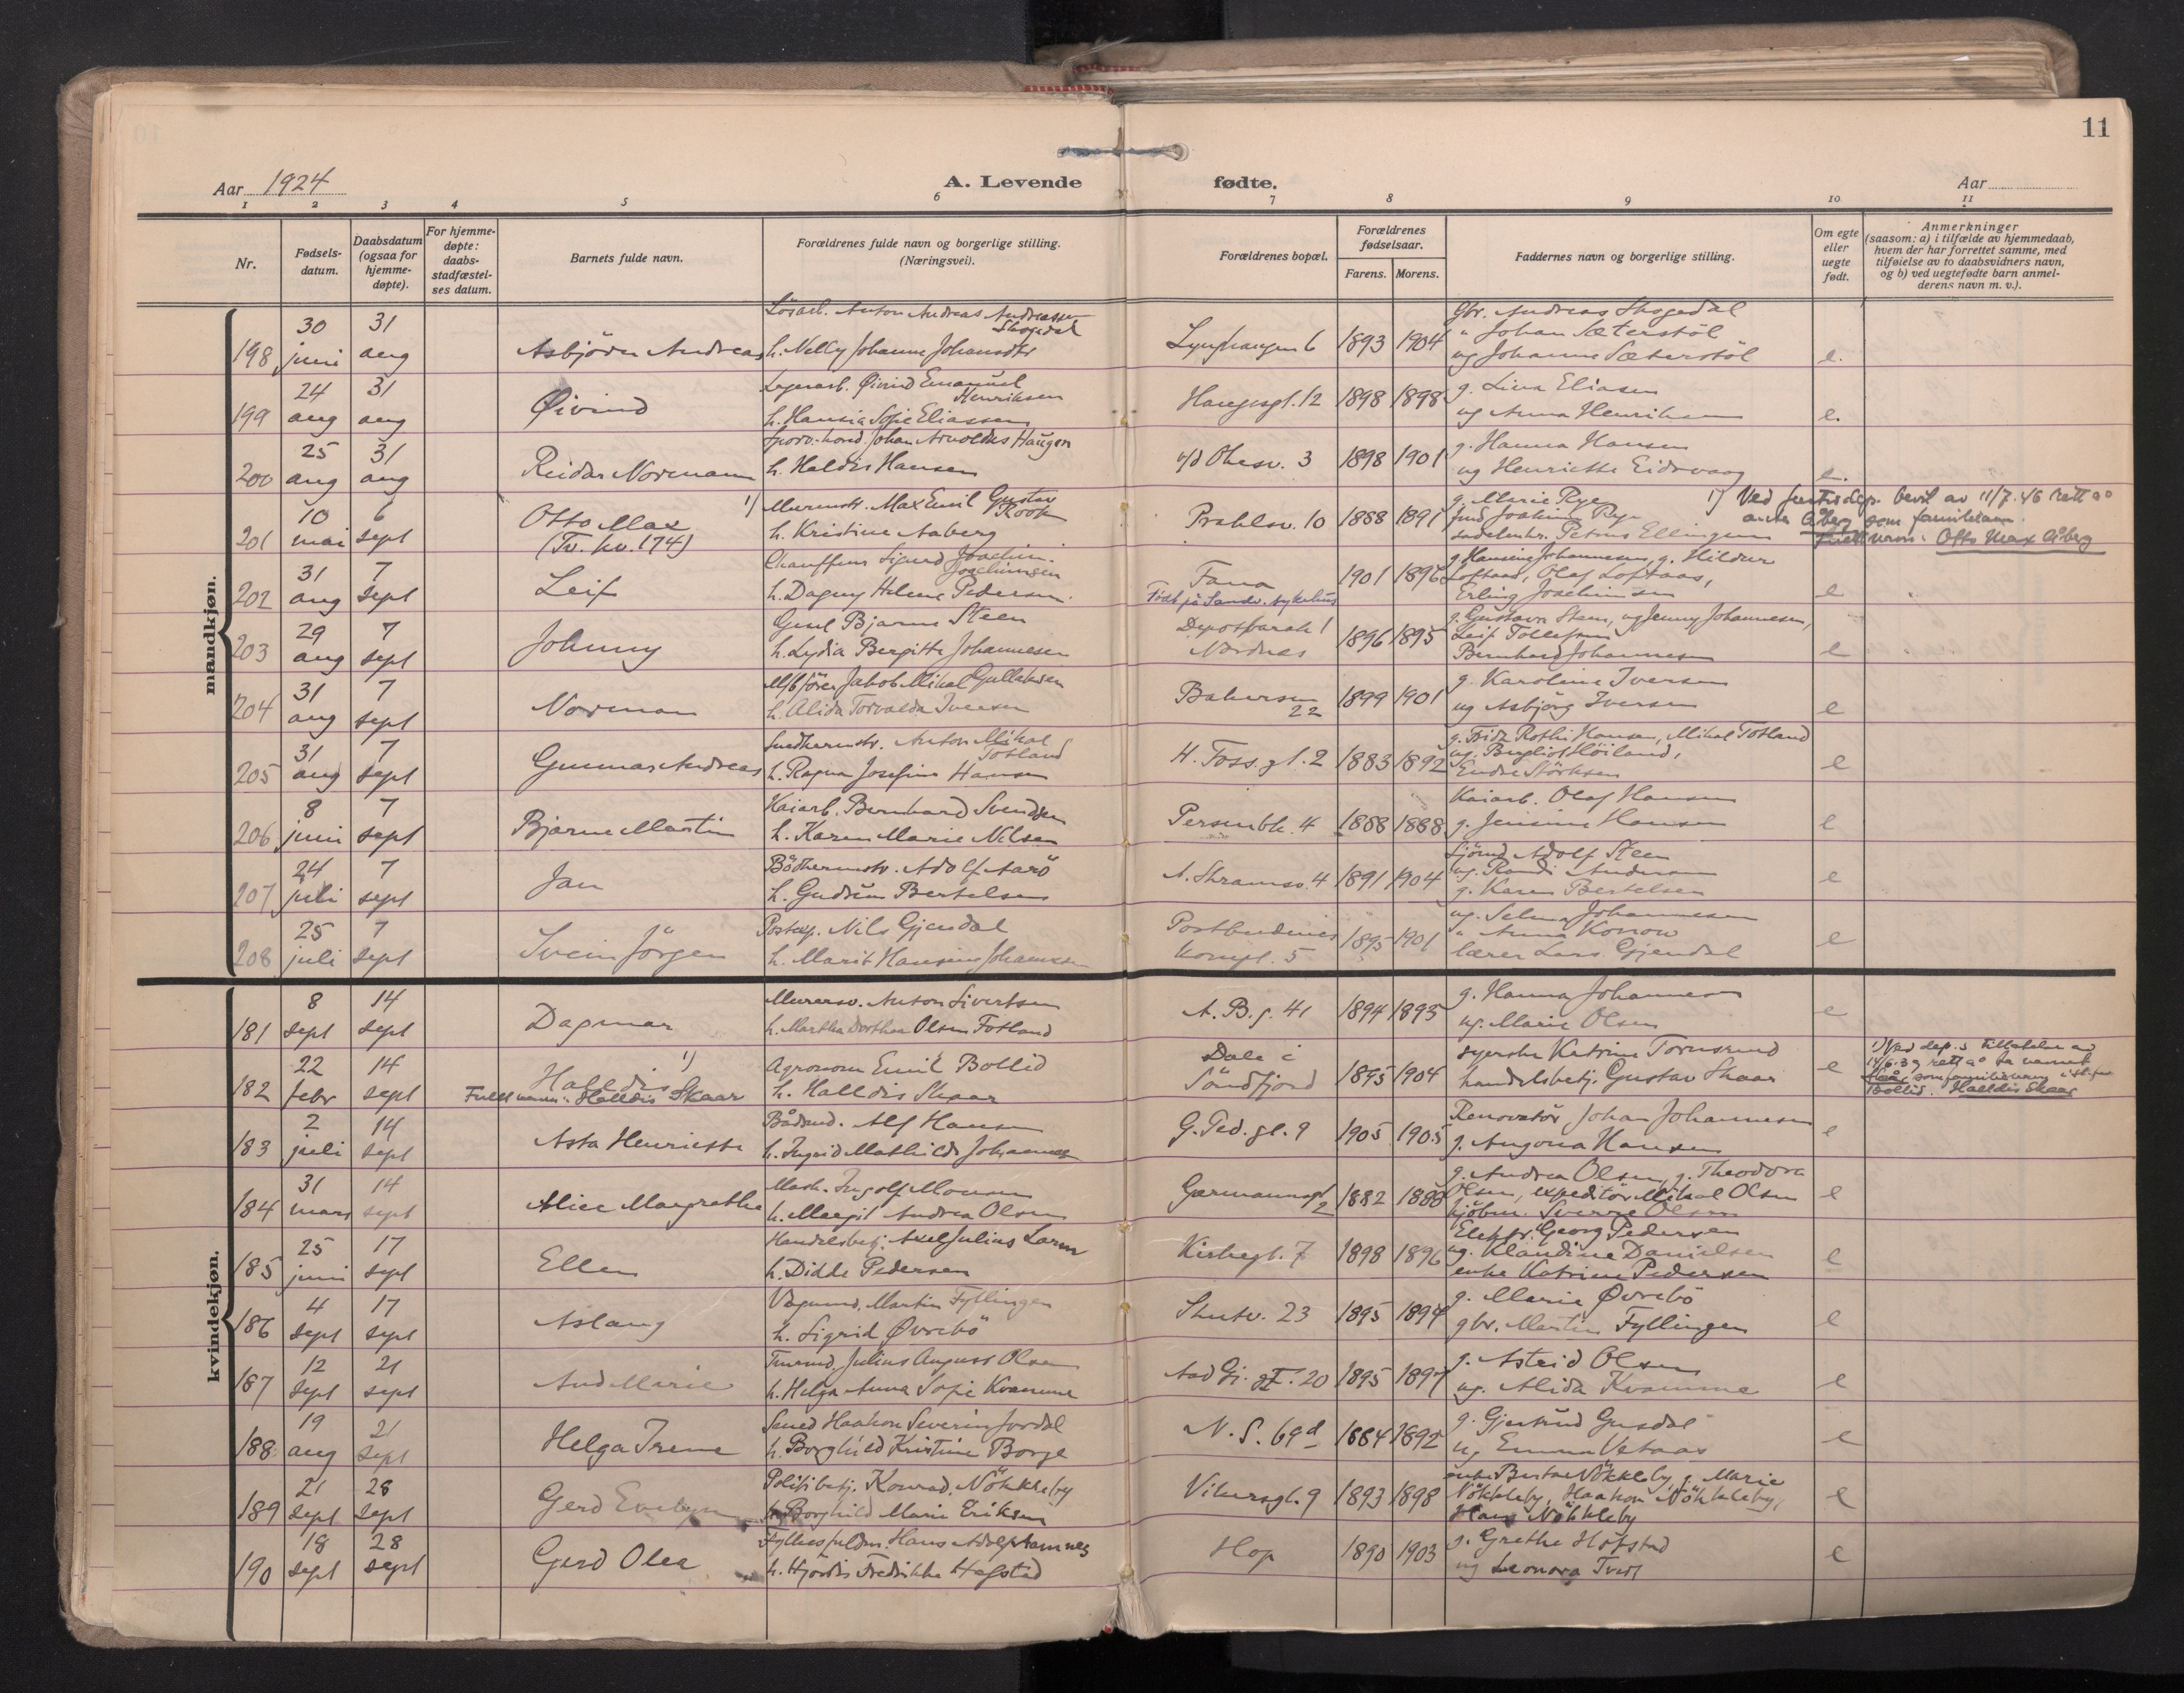 11
Aar 1924
A. Levende fødte.
Aar
1 2 3 4 5 6 7 8 9 10 11
Nr.
Fødsels-
datum.
Daabsdatum
(ogsaa for
hjemme-
døpte).
For hjemme-
døpte:
daabs-
stadfæstel-
ses datum.
Barnets fulde navn.
Forældrenes fulde navn og borgerlige stilling.
(Næringsvei).
Forældrenes bopæl.
Forældrenes
fødselsaar.
Farens. Morens.
Faddernes navn og borgerlige stilling.
Om egte
eller
uegte
født.
Anmerkninger
(saasom: a) i tilfælde av hjemmedaab,
hvem der har forrettet samme, med
tilføielse av to daabsvidners navn,
og b) ved uegtefødte barn anmel-
derens navn m. v.).
mandkjøn.
Løsarb. Anton Andreas Andreassen
Skogedal
Gbr. Andreas Skogedal
30 31
" Johan Sæterstöl
198 juni aug Asbjörn Andreas h. Nelly Johanne Johansdtr Lynghaugen 6 1893 1904 ug Johanne Sæterstöl e.
24 31 Lagerarb. Øivind Emanuel
Henriksen g. Lina Eliasen
199 aug aug Øivind h. Hansia Sofie Eliassen Haugesgt. 12 1898 1898 ug Anna Henriksen e.
25 31 Sporv. kond. Johan Arnoldus Haugen g. Hanna Hansen
200 aug aug Reidar Normann h. Haldis Hansen 1898 1901 ug Henriette Eidsvaag e.
10 6 Otto Max 1) Murmstr. Max Emil Gustav
Kook g. Marie Rye
201 mai sept (Tv. kv. 174) h. Kristine Aaberg Prahlsv. 10 1888 1891 Joakim Rye
sadelmkr. Petrus Ellingsen
1) Ved justisdep. bevil av 11/7.46 rett a°
anta Åberg som familienavn.
Fullt navn: Otto Max Åberg
31 7 Chauffeur Sigurd Joachim
Joachimsen g. Hansine Johannesen, g. Hildur
202 aug sept Leif h. Dagny Helene Pedersen. Fana 1901 1896 Loftaas, Olaf Loftaas,
Født på Sandv. sykehus Erling Joachimsen e
29 7 Bjarne Steen Depotbarak 1 g. Gustava Steen, ug Jenny Johannesen,
203 aug sept Johnny h. Lydia Bergitte Johannesen Nordnes 1896 1895 Leif Tollefsen
Bernhard Johannesen e
31 7 M/b förer Jakob Mikal Gullaksen g. Karoline Iversen
204 aug sept Norman h. Alida Torvalda Iversen 22 1899 1901 ug Asbjörg Iversen e
31 7 Snedkermstr. Anton Mikal
Totland g. Hansen, Mikal Totland
205 aug sept Gunnar Andreas h. Ragna Josefine Hansen H. Foss. gt. 2 1883 1892 ug. Bergliot Höiland,
Endre Störksen e
8 7 Kaiarb. Bernhard Svendsen Kaiarb. Olaf Hansen
206 juni sept Bjarne Martin h. Karen Marie Nilsen Persenbk. 4 1888 1888 g. Jensine Hansen e
24 7 Bödkermstr. Adolf Aarö Sjömd Adolf Steen
207 juli sept Jan h. Gudrun Bertelsen A. Skramsv. 4 1891 1904 ug. Randi Andersen
g. Karen Bertelsen e
25 7 Postexp. Nils Gjendal ug. Selma Johannesen
208 juli sept Svein Jörgen h. Marit Hansine Johannessen Postbudenes
kompl. 5 1895 1901 " Anna Konow
lærer Lars Gjendal e
kvindekjøn.
8 14 Murersv. Anton Sivertsen g. Hanna Johannesen
181 sept sept Dagmar h. Martha Dorthea Olsen Totland A. B. g. 41 1894 1895 ug. Marie Olsen e
22 14 Halldis 1) Agronom Emil Bollid Dale i syerske Katrine Tornsund
182 febr sept Fullt navn: Halldis Skaar h. Halldis Skaar Söndfjord 1895 1904 handelsbetj. Gustav Skaar e
1) Ved dep.s tillatelse av
14/6.39 rett a° ta navnet
Skaar som familienavn i st. for
Bollid. Halldis Skaar
2 14 Alf Hansen Renovatör Johan Johannesen
183 juli sept Asta Henriette h. Ingrid Mathilde Johannesen G. Ped. gt. 9 1905 1905 g. Angona Hansen e
31 14 Mask. Ingolf Monsen g. Andrea Olsen, g. Theodora
184 mars sept Alice Margrethe h. Margit Andrea Olsen Garmannsgt.
2 1882 1888 Olsen, expeditör Mikal Olsen
kjöbm. Sverre Olsen e
25 17 Handelsbetj. Axel Julius Larsen Elektr. Georg Pedersen
185 juni sept Ellen h. Didde Pedersen Kirkegt. 7 1898 1896 ug. Klaudine Danielsen
enke Katrine Pedersen e
4 17 Vognmd. Martin Fyllingen g. Marie Øvrebö
186 sept sept Aslaug h. Sigrid Øvrebö Skutv. 23 1895 1894 gbr. Martin Fyllingen e
12 21 Julius August Olsen g. Astrid Olsen
187 sept sept Aud Marie h. Helga Anna Sofie Kvamme 20 1895 1897 ug. Alida Kvamme e
19 21 Smed Haakon Severin Jordal g. Gjertrud Gusdal
188 aug sept Helga Irene h. Borghild Kristine Borge N. S. 69d 1884 1892 ug Emma Vetaas e
21 28 Politibetj. Konrad Nökkleby enke Berta Nökkleby, g. Marie
189 sept sept Gerd Evelyn h. Borghild Marie Eriksen Vikensgt. 9 1893 1898 Nökkleby, Haakon Nökkleby,
Hans Nökkleby e
18 28 Fylkesfuldm. Hans Adolf Hamnes g. Grethe Hofstad
190 sept sept Gerd Olea h. Hjördis Fredrikke Hofstad Hop 1890 1903 ug Leonora Tveit e